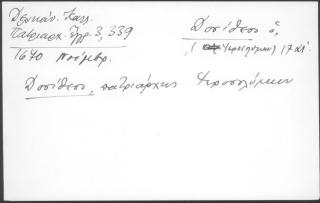 Δελικάν. Καλλ.
Πατριαρχ. Ἔγγρ. 3, 339
1670 Νοέμβρ.
Δοσίθεος ὁ,
Ἱεροσολύμων) 17 αἰ.
Δοσίθεος, πατριάρχης Ἱεροσολύμων